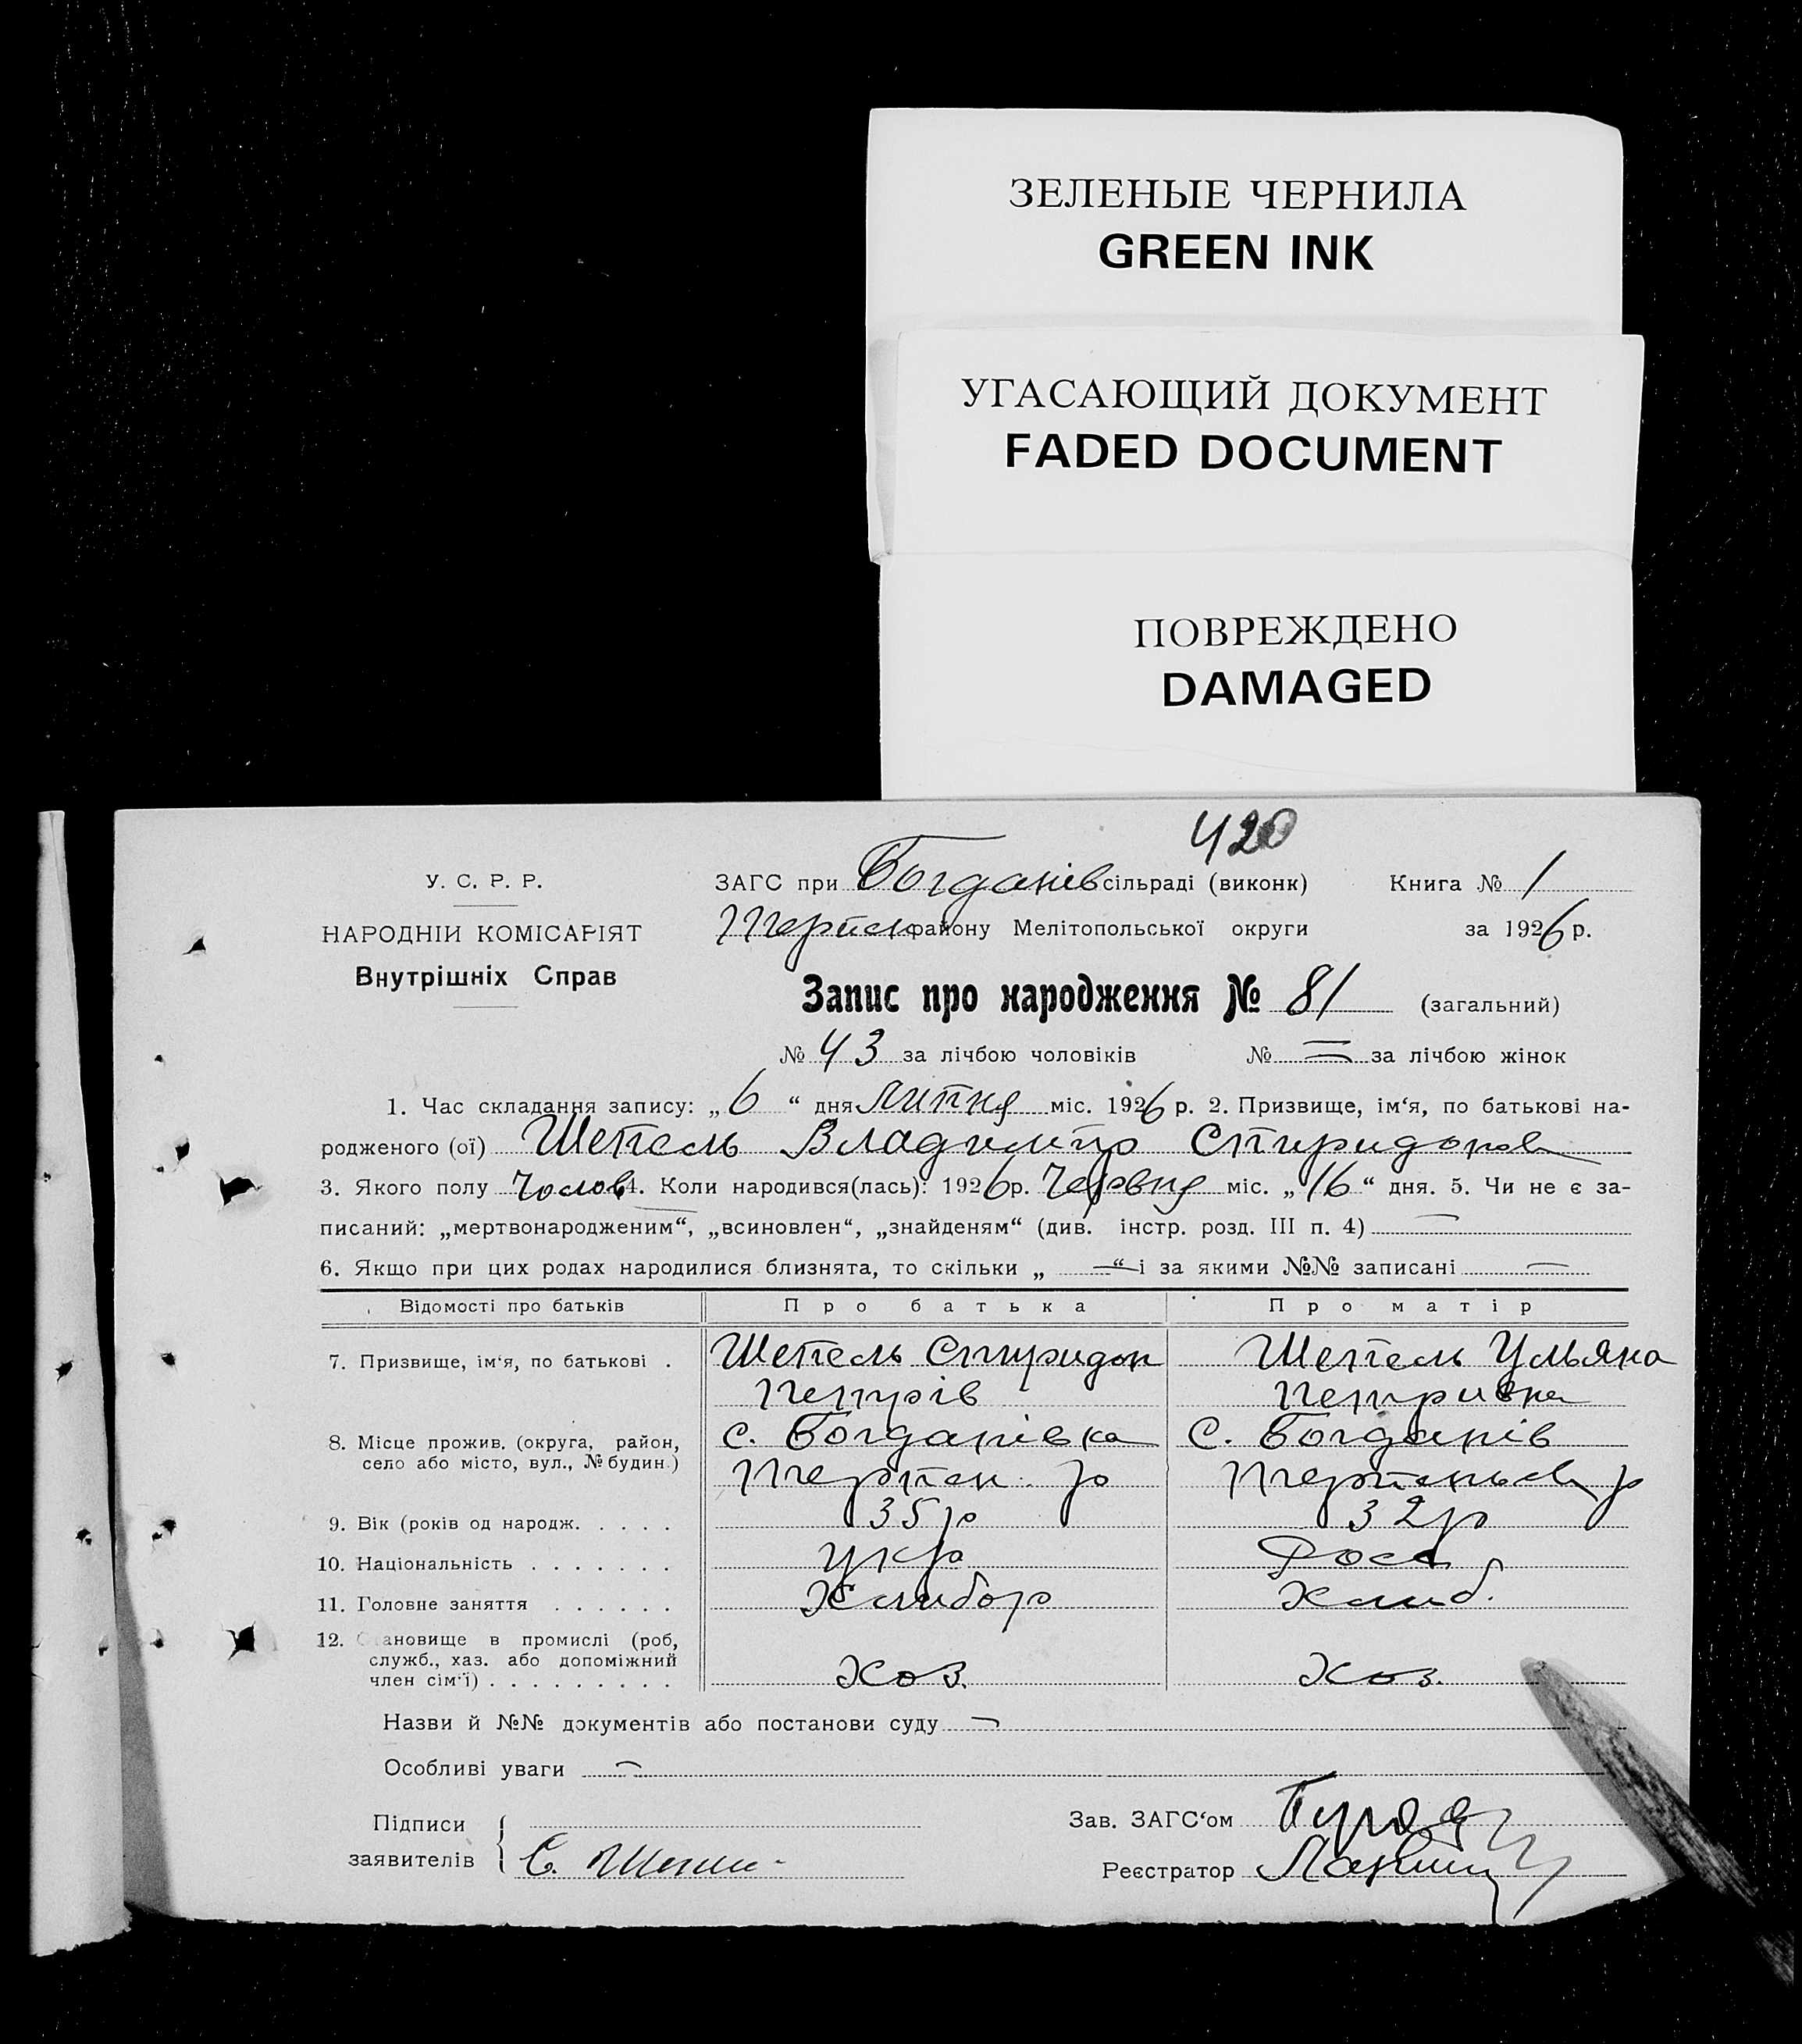 ЗЕЛЕНЫЕ ЧЕРНИЛА
GREEN INK
УГАСАЮЩИЙ ДОКУМЕНТ
FADED DOCUMENT
ПОВРЕЖДЕНО
DAMAGED
420
У. С. Р. Р.
НАРОДНІЙ КОМІСАРІЯТ
Внутрішніх Справ
ЗАГС при Богданів сільраді (виконк) Книга № 1
Терпен району Мелітопольської округи за 1926 р.
Запис про народження № 81 (загальний)
№ 43 за лічбою чоловіків № = за лічбою жінок
1. Час складання запису: „6“ дня липня міс. 1926 р. 2. Призвище, ім‘я, по батькові на-
родженого (ої) Шепель Владимір Спиридонов
3. Якого полу Чолов 4. Коли народився(лась): 1926 р. Червня міс. „16“ дня. 5. Чи не є за-
писаний: „мертвонародженим“, „всиновлен“, „знайденям“ (див. інстр. розд. III п. 4) —
6. Якщо при цих родах народилися близнята, то скільки „ — “ і за якими №№ записані —
Відомості про батьків Про батька Про матір
7. Призвище, ім‘я, по батькові . Шепель Спиридон Шепель Ульяна
Петрів Петривна
8. Місце прожив. (округа, район, с. Богданівка с. Богданів
село або місто, вул., № будин.) Терпен. р Терпеньев р
9. Вік (років од народж. . . . . 35 р 32 р
10. Національність . . . . . . . укр Рос
11. Головне заняття . . . . . . Хлибор хлиб.
12. Становище в промислі (роб,
служб., хаз. або допоміжний
член сім‘ї) . . . . . . . . . хоз. хоз.
Назви й №№ документів або постанови суду —
Особливі уваги —
Підписи
заявителів С. Шепель
Зав. ЗАГС‘ом
Реєстратор